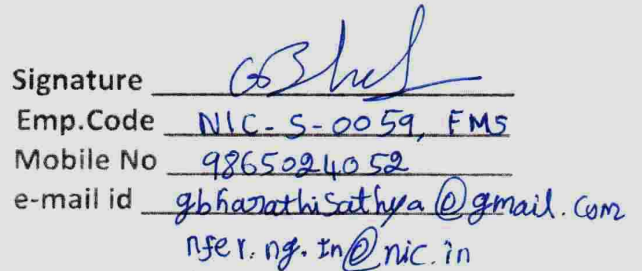 Signature
Emp.Code NIC-S-0059, FMS
Mobile No 9865024052
e-mail id gbharathisathya@gmail.com
nfer.ng.tn@nic.in